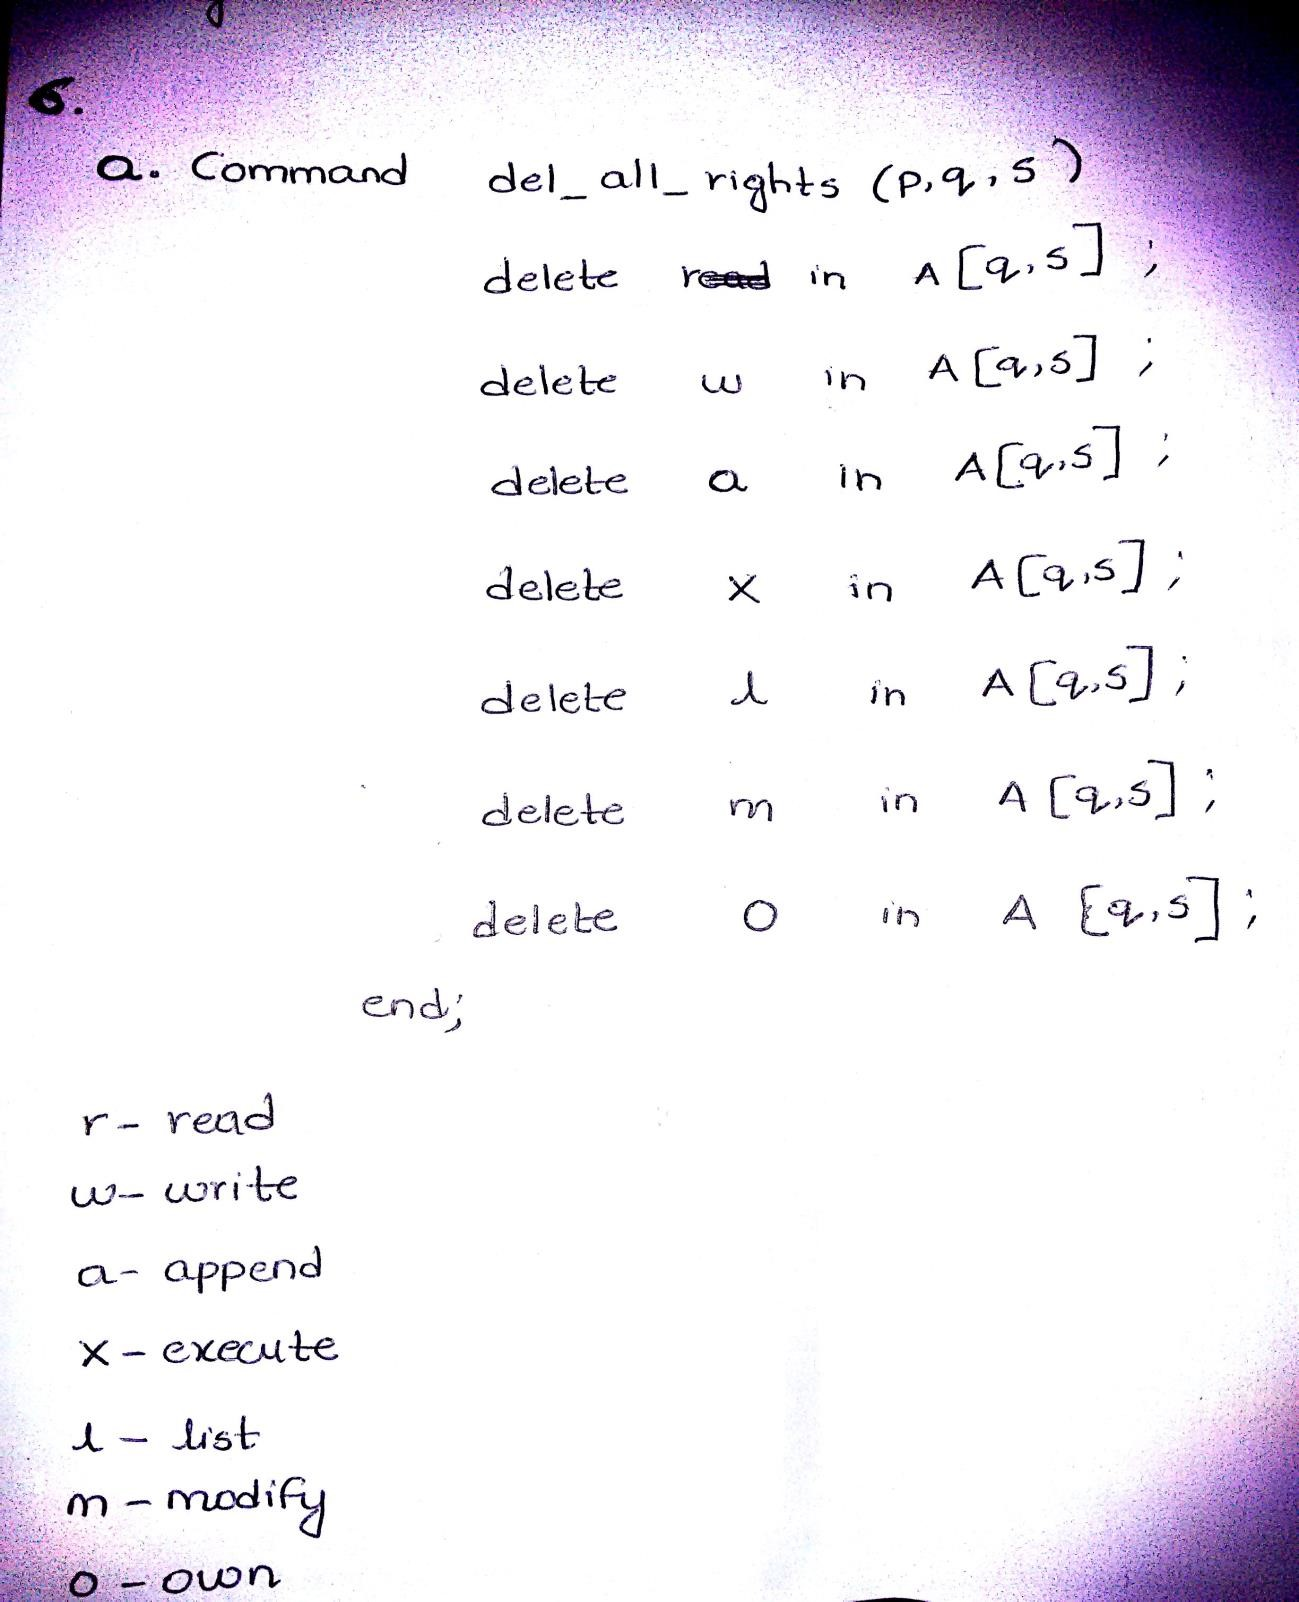 6.
a. Command del_all_rights (p,q,s)
delete r in A[q,s];
delete w in A[q,s];
delete a in A[q,s];
delete x in A[q,s];
delete l in A[q,s];
delete m in A[q,s];
delete o in A[q,s];
end;
r - read
w - write
a - append
x - execute
l - list
m - modify
o - own